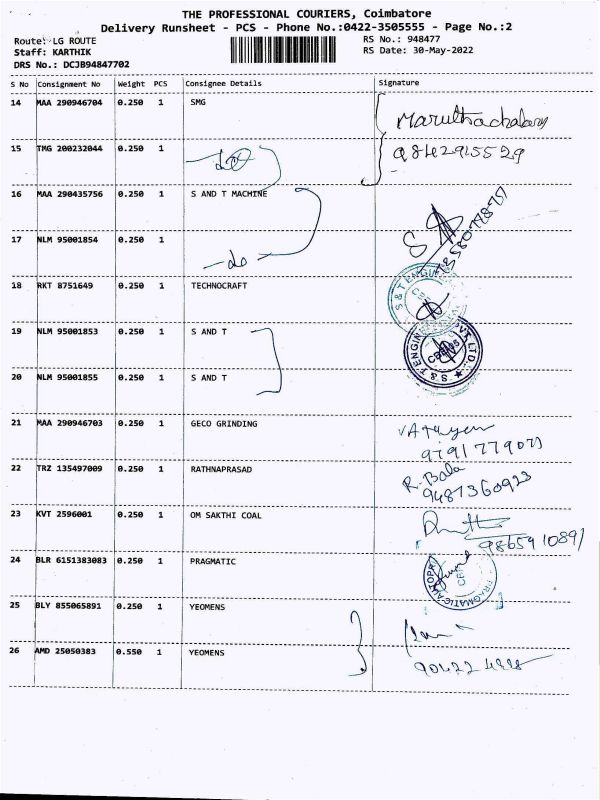 THE PROFESSIONAL COURIERS, Coimbatore
Delivery Runsheet - PCS - Phone No.:0422-3505555 - Page No.:2
Route: LG ROUTE
RS No.: 948477
Staff: KARTHIK
RS Date: 30-May-2022
DRS No.: DCJB94847702
S No Consignment No Weight PCS Consignee Details Signature
14 MAA 290946704 0.250 1 SMG
Maruthachalam
9842915529
15 TMG 200232044 0.250 1 -do-
16 MAA 290435756 0.250 1 S AND T MACHINE
17 NLM 95001854 0.250 1
-do-
18 RKT 8751649 0.250 1 TECHNOCRAFT
19 NLM 95001853 0.250 1 S AND T
20 NLM 95001855 0.250 1 S AND T
21 MAA 290946703 0.250 1 GECO GRINDING
22 TRZ 135497009 0.250 1 RATHNAPRASAD
R. Bala
9487360923
23 KVT 2596001 0.250 1 OM SAKTHI COAL
24 BLR 6151383083 0.250 1 PRAGMATIC
PRAGMATIC AUTOPR
25 BLY 855065891 0.250 1 YEOMENS
26 AMD 25050383 0.550 1 YEOMENS